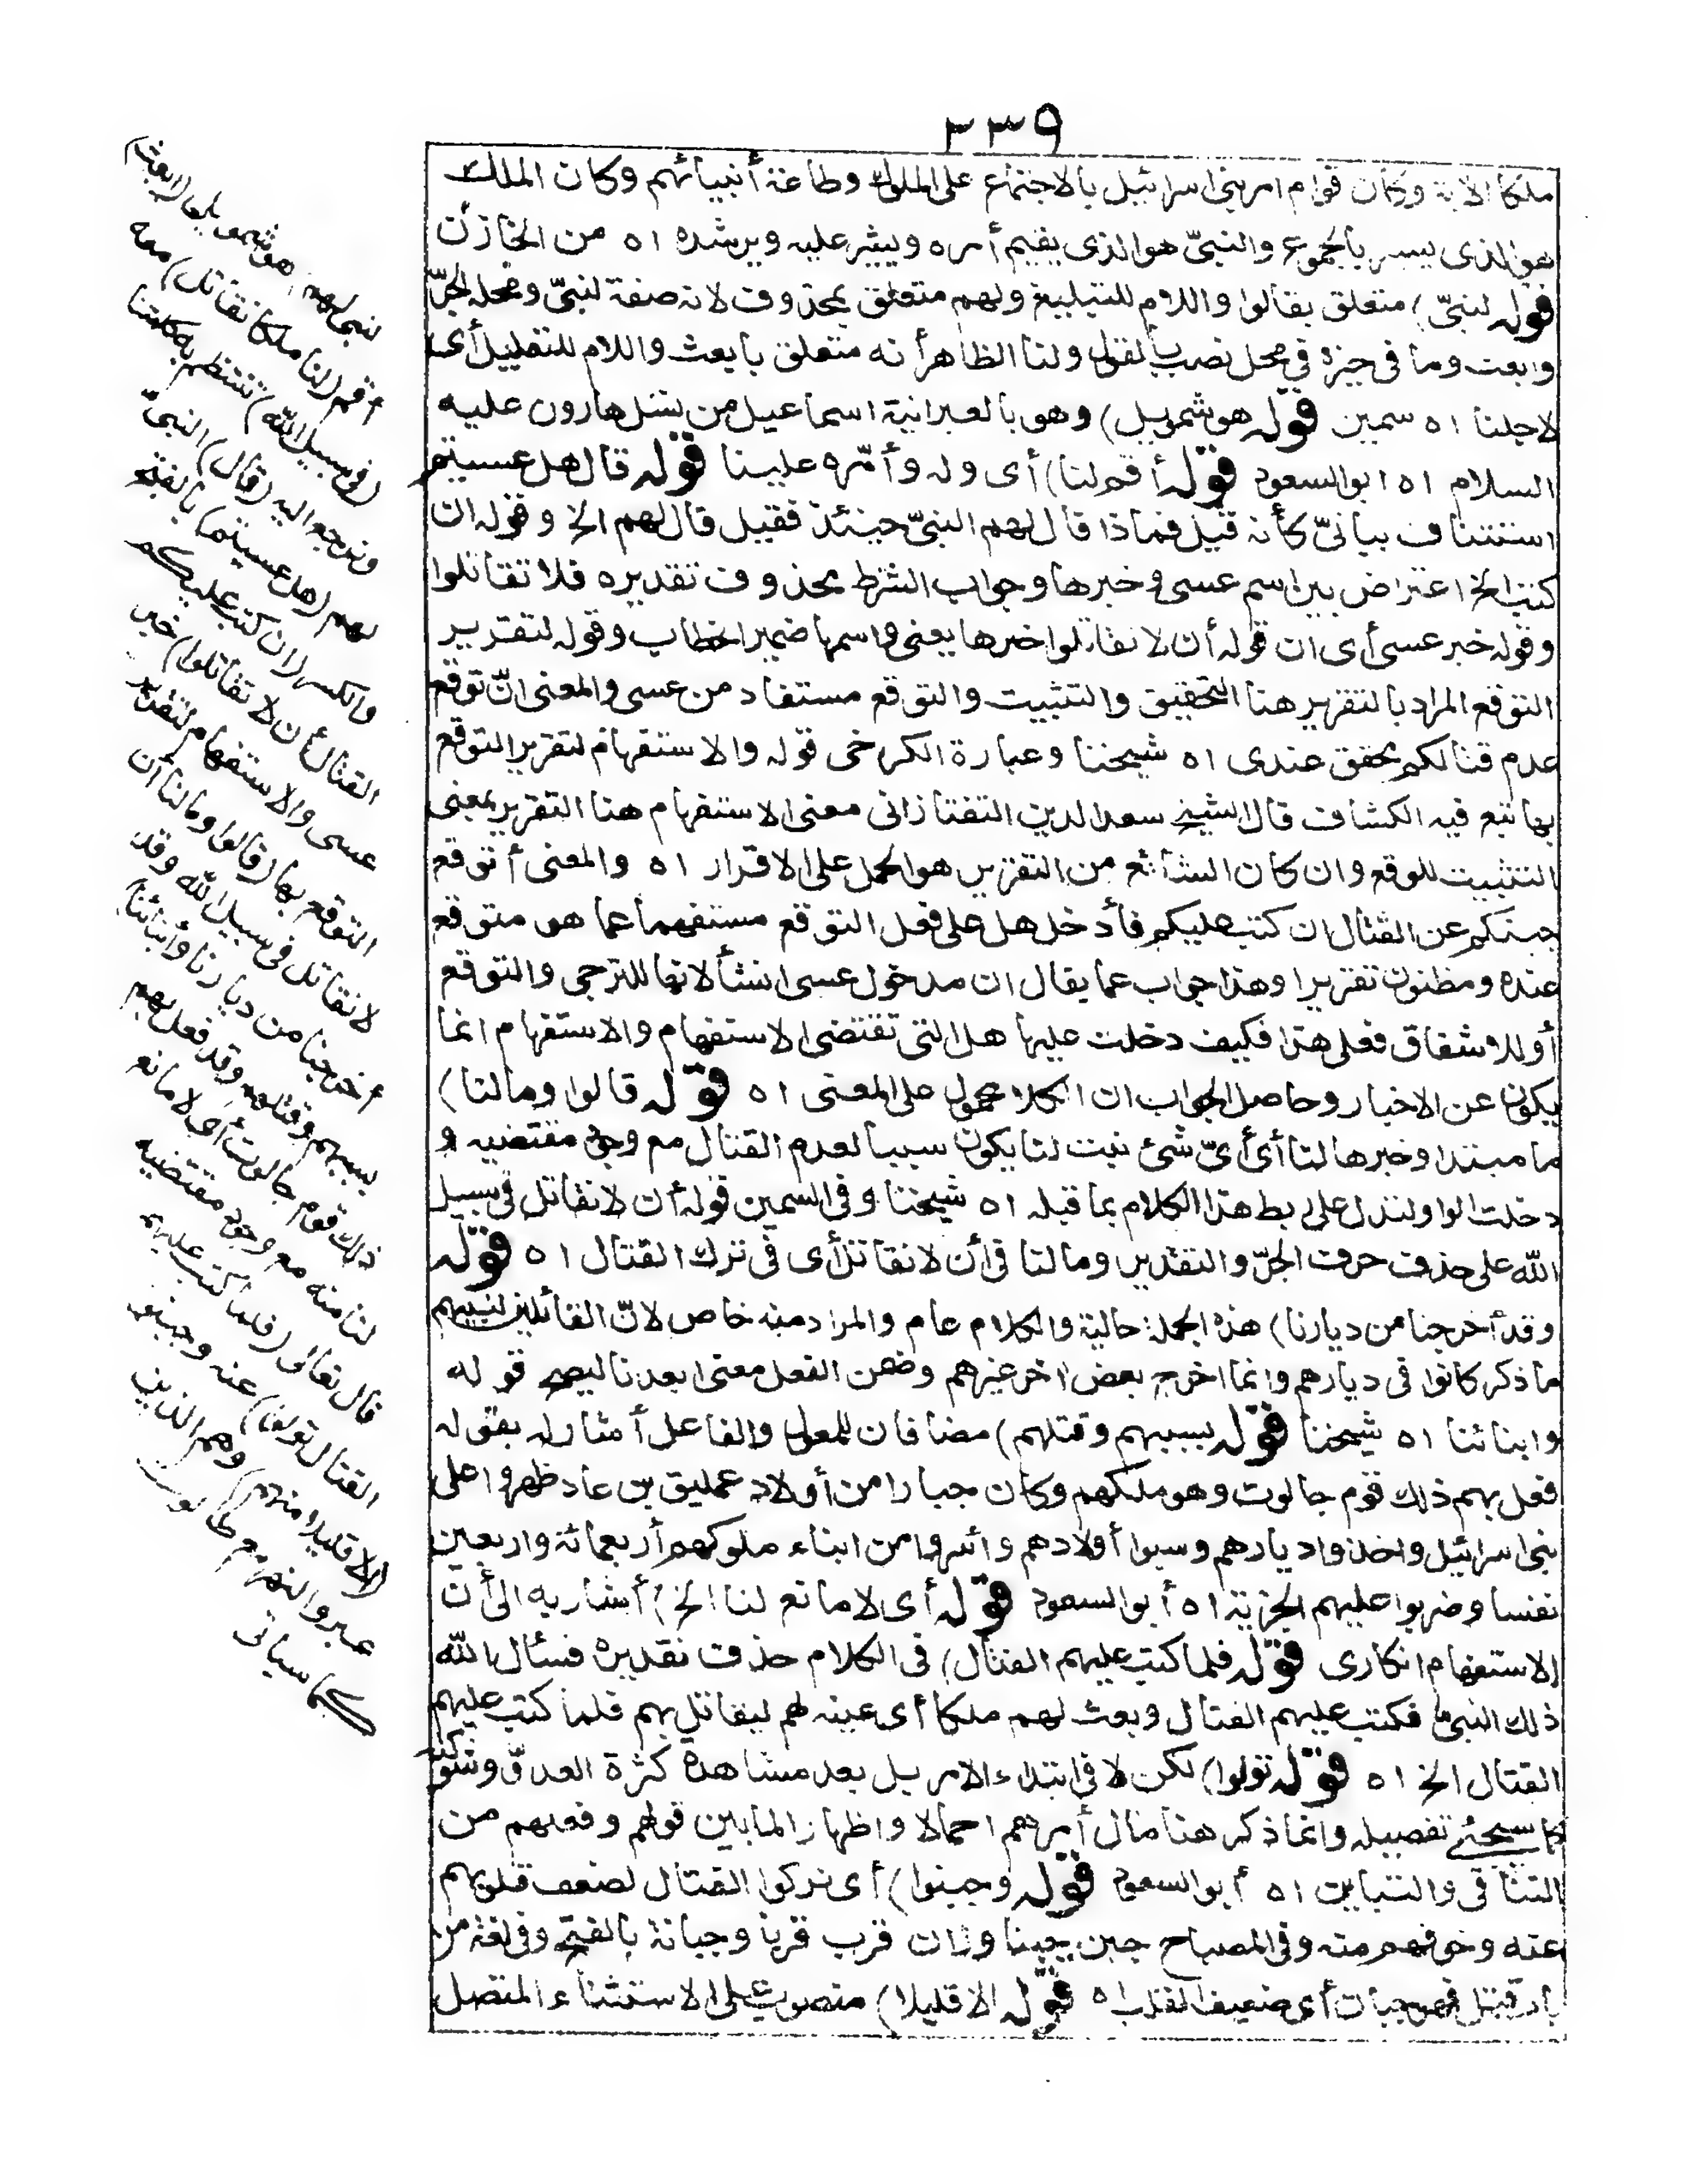 ٢٣٩
ملكا الآية وكان قوام امر بنى اسرائيل بالاجتماع على الملوك وطاعة أنبيائهم وكان الملك
هو الذى يسير بالجموع والنبىّ هو الذى يقيم أمره ويشير عليه ويرشده اه من الخازن
قوله لنبىّ) متعلق بقالوا واللام للتبليغ ولهم متعلق بمحذوف لانه صفة لنبىّ ومحله الجرّ
وابعث وما فى حيزه فى محل نصب بالقول ولنا الظاهر أنه متعلق بابعث واللام للتعليل أى
لاجلنا اه سمين قوله هو شمويل) وهو بالعبرانية اسماعيل من نسل هارون عليه
السلام اه ابو السعود قوله أقم لنا) أى وله وأمّره علينا قوله قال هل عسيتم
استئناف بيانىّ كأنه قيل فماذا قال لهم النبىّ حينئذ فقيل قال لهم الخ وقوله ان
كتب الخ اعتراض بين اسم عسى وخبرها وجواب الشرط محذوف تقديره فلا تقاتلوا
وقوله خبر عسى أى ان قوله أن لا تقاتلوا خبرها يعنى واسمها ضمير الخطاب وقوله لتقرير
التوقع المراد بالتقرير هنا التحقيق والتثبيت والتوقع مستفاد من عسى والمعنى انّ توقع
عدم قتالكم محقق عندى اه شيخنا وعبارة الكرخى قوله والاستفهام لتقرير التوقع
بها تبع فيه الكشاف قال الشيخ سعد الدين التفتازانى معنى الاستفهام هنا التقرير بمعنى
التثبيت للوقع وان كان الشائع من التقرير هو الحمل على الاقرار اه والمعنى أتوقع
جبنكم عن القتال ان كتب عليكم فأدخل هل على فعل التوقع مستفهما عما هو متوقع
عنده ومظنون تقريرا وهذا جواب عما يقال ان مدخول عسى انشأ لانها للترجى والتوقع
أو للاشفاق فعلى هذا فكيف دخلت عليها هل التى تقتضى الاستفهام والاستفهام انما
يكون عن الاخبار وحاصل الجواب ان الكلام محمول على المعنى اه قوله قالوا ومالنا)
ما مبتدا وخبرها لنا أى أىّ شئ ثبت لنا يكون سببا لعدم القتال مع وجود مقتضيه و
دخلت الواو لتدل على ربط هذا الكلام بما قبله اه شيخنا وفى السمين قوله أن لا نقاتل فى سبيل
الله على حذف حرف الجرّ والتقدير ومالنا فى أن لا نقاتل أى فى ترك القتال اه قوله
وقد أخرجنا من ديارنا) هذه الجملة حالية والكلام عام والمراد منه خاص لانّ القائلين لنبيهم
ما ذكر كانوا فى ديارهم وانما اخرج بعض اخر غيرهم وضمن الفعل معنى ابعدنا ليصح قوله
وابنائنا اه شيخنا قوله بسبيهم وقتلهم) مضافان للمفعول والفاعل أشار له بقوله
فعل بهم ذلك قوم جالوت وهو ملكهم وكان جبارا من أولاد عمليق بن عاد ظهروا على
بنى اسرائيل واخذوا ديارهم وسبوا أولادهم وأسروا من ابناء ملوكهم أربعمائة واربعين
نفسا وضربوا عليهم الجزية اه أبو السعود قوله أى لا مانع لنا الخ) أشار به الى أن
الاستفهام انكارى قوله فلما كتب عليهم القتال) فى الكلام حذف تقديره فسأل الله
ذلك النبىّ فكتب عليهم القتال وبعث لهم ملكا أى عينه لهم ليقاتل بهم فلما كتب عليهم
القتال الخ اه قوله تولوا) لكن لا فى ابتداء الامر بل بعد مشاهدة كثرة العدوّ وشوكته
كما سيجئ تفصيله وانما ذكر هنا مآل أمرهم اجمالا واظهارا لما بين قولهم وفعلهم من
التنافى والتباين اه أبو السعود قوله وجبنوا) أى تركوا القتال لضعف قلوبهم
عنه وخوفهم منه وفى المصباح جبن جبنا وزان قرب قربا وجبانة بالفتح وفى لغة من
باب قتل فهو جبان أى ضعيف القلب اه قوله الا قليلا) منصوب على الاستثناء المتصل
لنبى لهم) هو شمويل (ابعث)
أقم (لنا ملكا نقاتل) معه
(فى سبيل الله) تنتظم به كلمتنا
ونرجع اليه (قال) النبىّ
لهم (هل عسيتم) بالفتح
والكسر (ان كتب عليكم
القتال أن لا تقاتلوا) خبر
عسى والاستفهام لتقرير
التوقع بها (قالوا ومالنا أن
لا نقاتل فى سبيل الله وقد
أخرجنا من ديارنا وأبنائنا)
بسبيهم وقتلهم وقد فعل بهم
ذلك قوم جالوت أى لا مانع
لنا منه مع وجود مقتضيه
قال تعالى (فلما كتب عليهم
القتال تولوا) عنه وجبنوا
(الا قليلا منهم) وهم الذين
عبروا النهر مع طالوت
كما سياتى